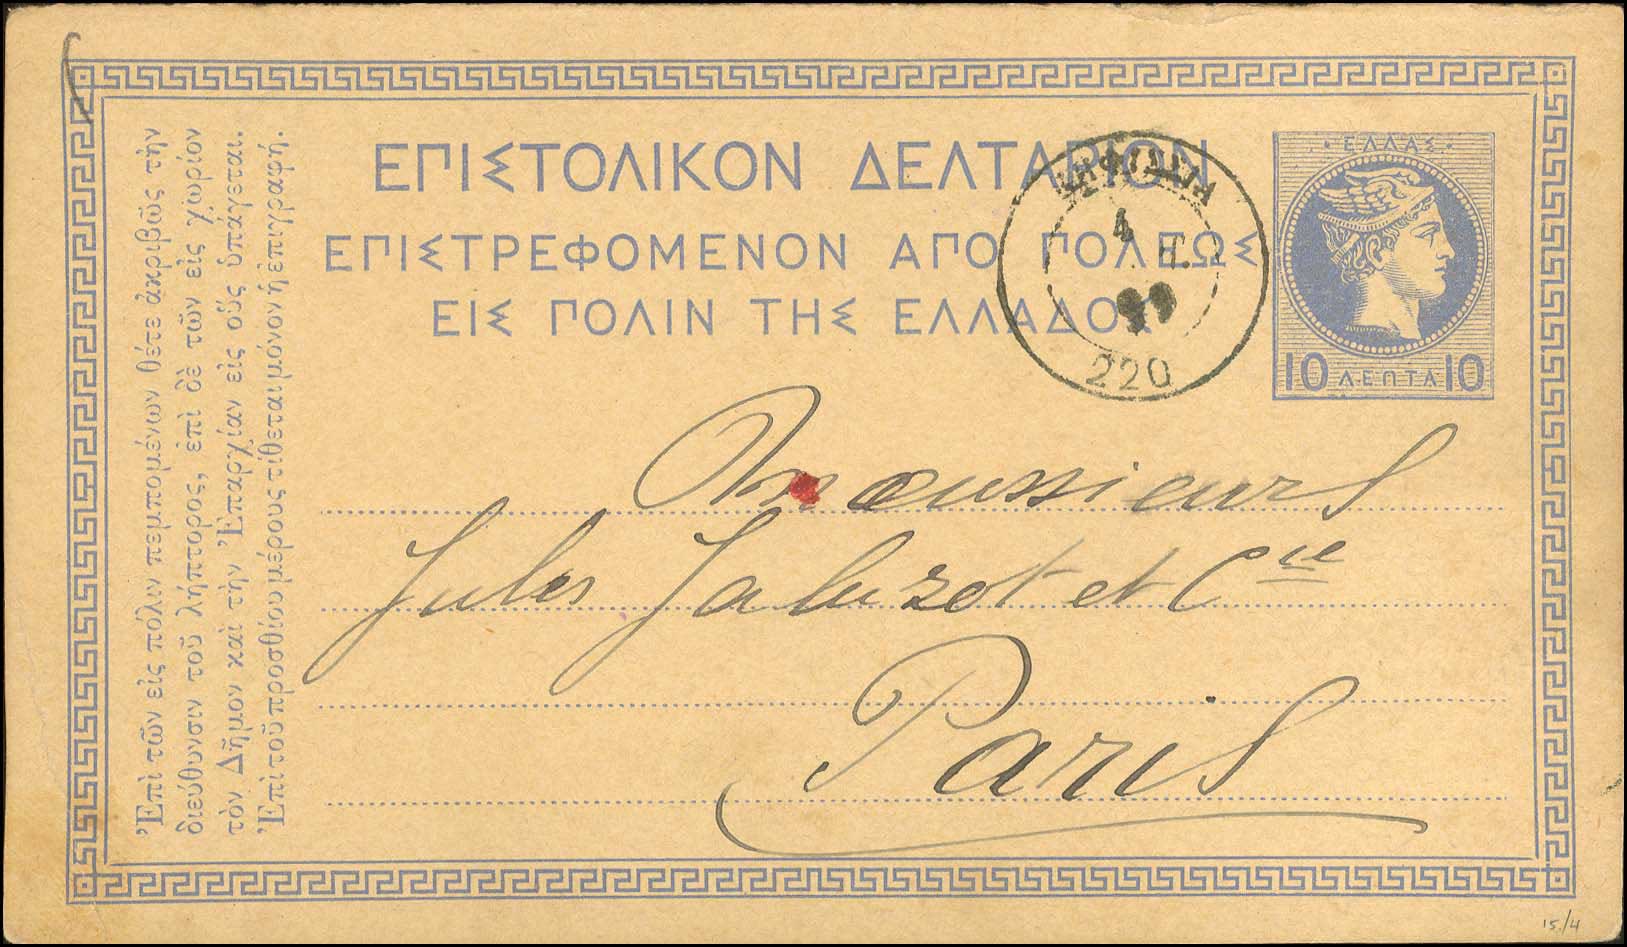 ΕΠΙΣΤΟΛΙΚΟΝ ΔΕΛΤΑΡΙΟΝ
ΕΠΙΣΤΡΕΦΟΜΕΝΟΝ ΑΠΟ ΠΟΛΕΩΣ
ΕΙΣ ΠΟΛΙΝ ΤΗΣ ΕΛΛΑΔΟΣ
ΚΗΦΙΣΣΙΑ
4
99
220
·ΕΛΛΑΣ·
10 ΛΕΠΤΑ 10
Ἐπὶ τῶν εἰς πόλιν πεμπομένων θέτε ἀκριβῶς τὴν
διεύθυνσιν τοῦ λήπτορος, ἐπὶ δὲ τῶν εἰς χωρίον
τὸν Δῆμον καὶ τὴν Ἐπαρχίαν εἰς οὓς ὑπάγεται.
Ἐπὶ τοῦ προσθίου μέρους τίθεται μόνον ἡ ἐπιγραφή.
Messieurs
Jules Jaluzot et Cie
Paris
15/4